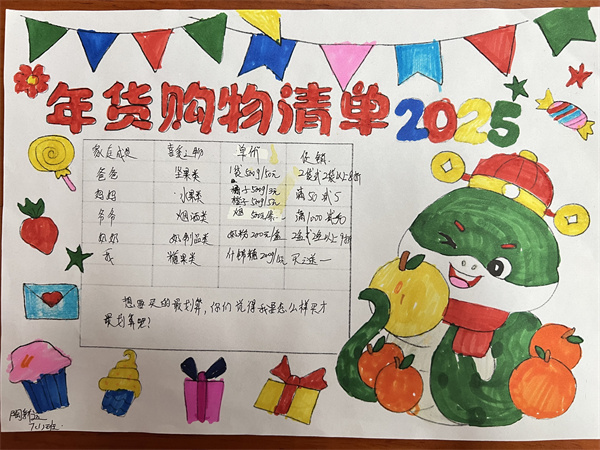 年货购物清单2025
家庭成员 喜爱之物 单价 促销
爸爸 坚果类 1袋500g/50元 2袋或2袋以上8折
妈妈 水果类 橘子500g/3元 满50减5
橙子500g/5元
爷爷 烟酒类 烟 500元/条 满1000减
奶奶 奶制品类 奶粉200元/盒 2盒或2盒以上9折
我 糖果类 什锦糖 买二送一
想要买的最划算，你们觉得我是怎么样买才
最划算呢？